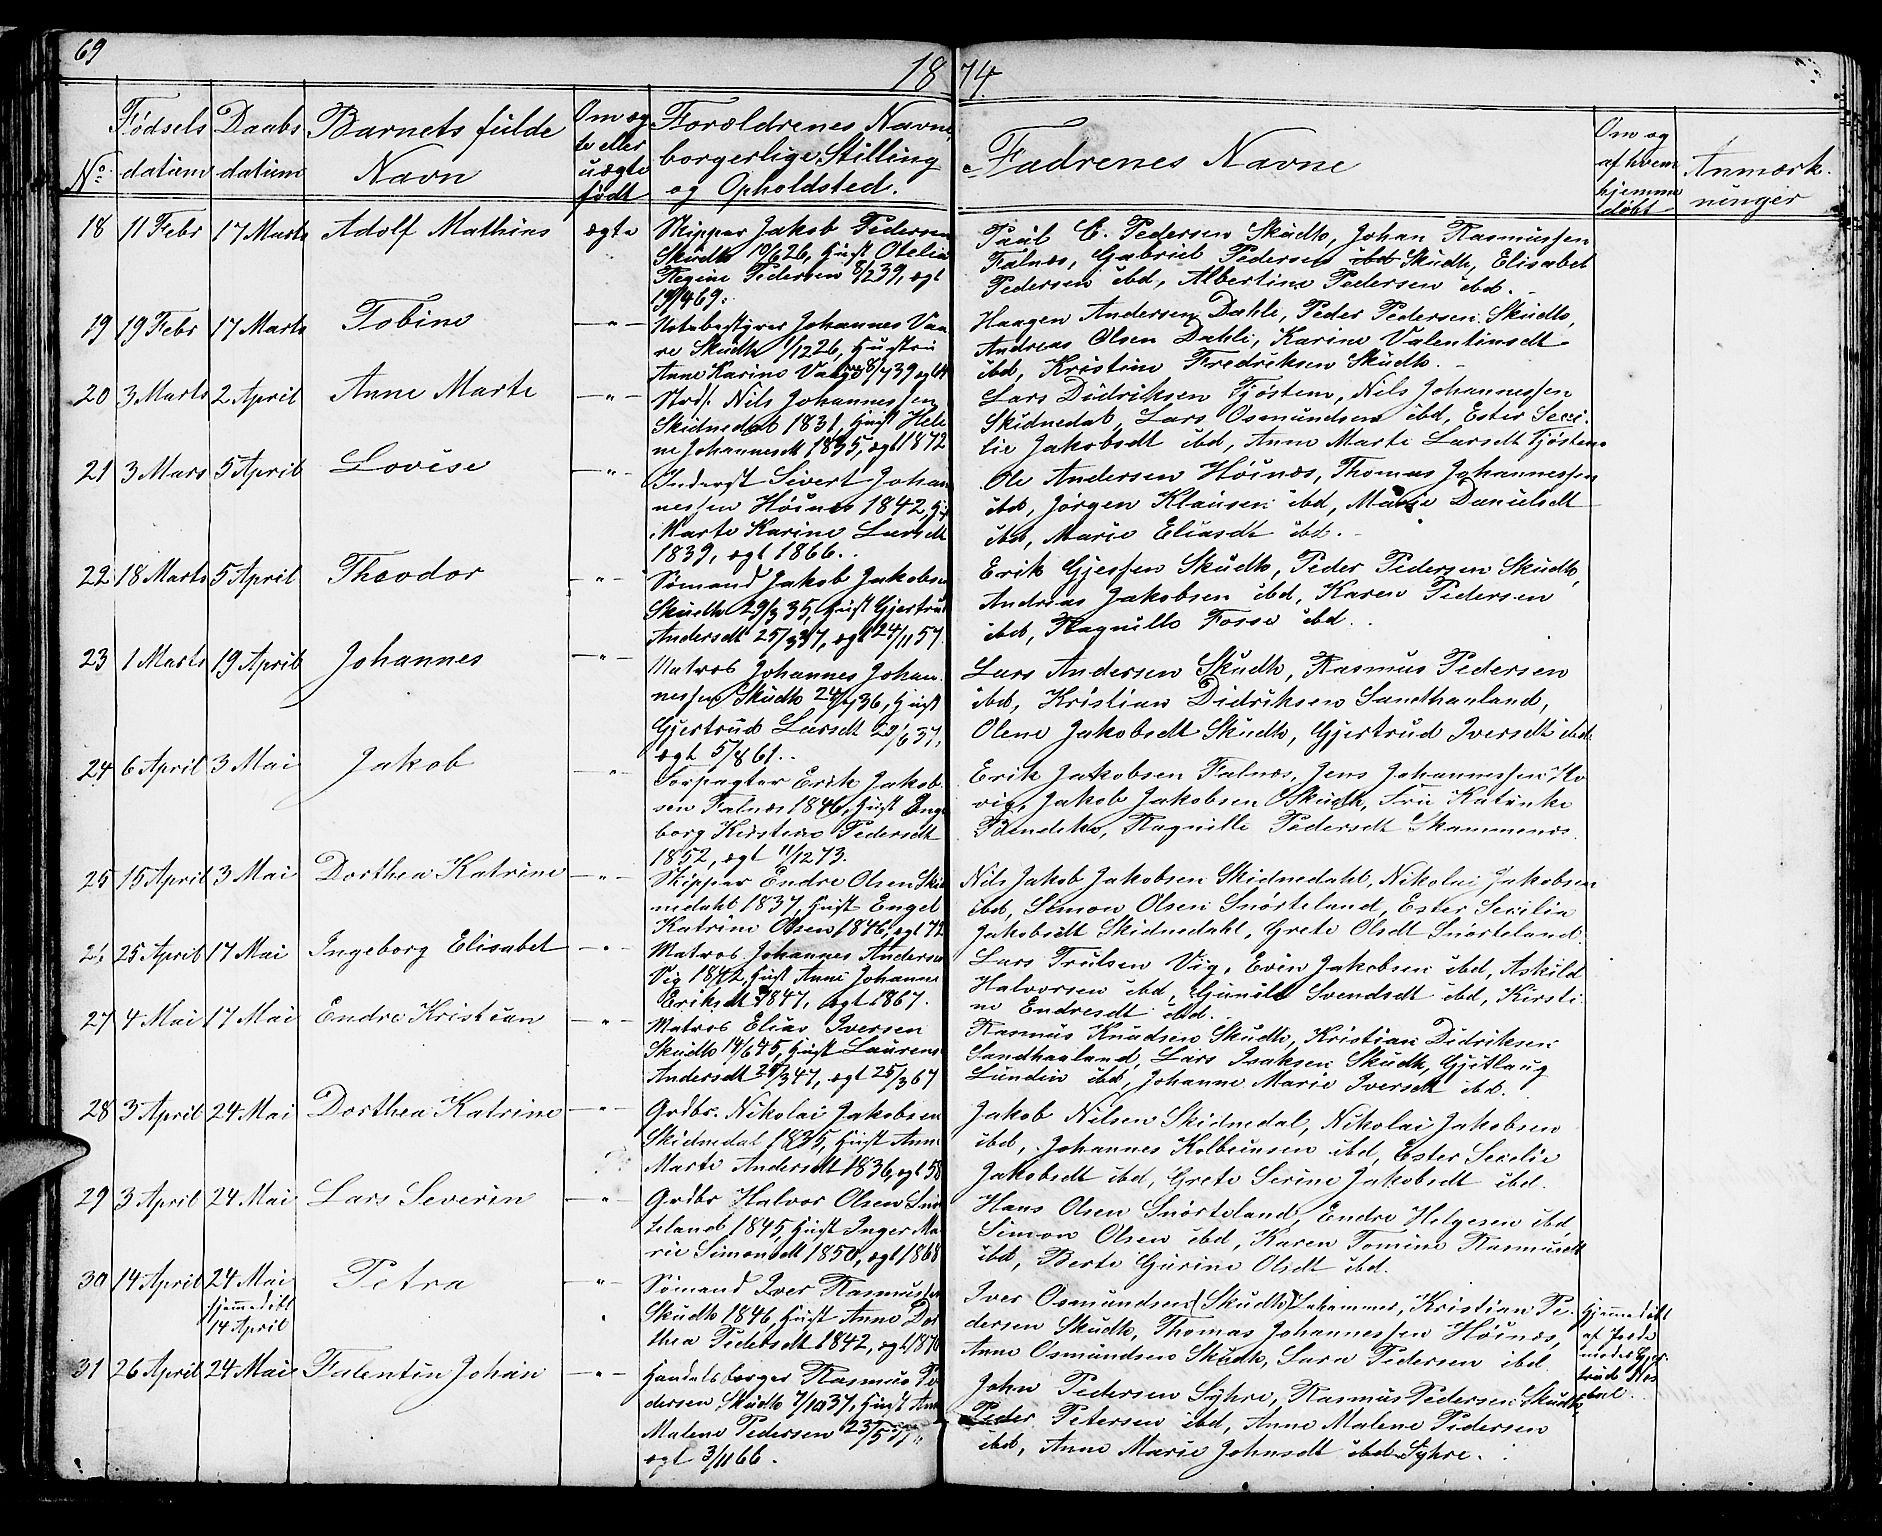 69
18 74.
No. Fødsels datum Daabs datum Barnets fulde Navn Om ægte eller uægte født Forældrenes Navne, borgerlige Stilling og Opholdsted. Fadrenes Navne Om og af hvem hjemme døbt Anmærkninger
18 11 Febr 17 Marts Adolf Mathias ægte Skipper Jakob Pedersen
Skudh 10/6 26, Hust Otelia
Regine Pedersen 8/2 39, ægt
19/4 69.
Paul C. Pedersen Skudh, Johan Rasmussen
Falnæs, Gabriel Pedersen ibd Skudh, Elisabet
Pedersen ibd, Albertine Pedersen ibd.
19 19 Febr 17 Marts Tobine -"- Notebestyrer Johannes Vaa
re Skudh 1/12 26, Hustru
Anne Karine Vaare 8/7 39 ægt
Haagen Andersen Dahle, Peder Pedersen Skudh,
Andreas Olsen Dahle, Karine Valentinsdt
ibd, Kristine Fredriksen Skudh.
20 3 Marts 2 April Anne Marte -"- Nils Johannessen
Skidnedal 1831, Hust Hele
ne Johannesdt 1835, ægt 1872
Lars Didriksen Tjøstem, Nils Johannessen
Skidnedal, Lars Osmundsen ibd, Ester Seci-
lie Jakobsdt ibd, Anne Marte Larsdt Tjøstem
21 3 Mars 5 April Lovise -"- Inderst Sivert Johan
nessen Høinæs 1842, Hust
Marte Karine Larsdt
1839, ægt 1866.
Ole Andersen Høinæs, Thomas Johannessen
ibd, Jørgen Klausen ibd, Marie Danielsdt
ibd, Marie Eliasdt ibd.
22 18 Marts 5 April Theodor -"- Sømand Jakob Jakobsen
Skudh 29/3 35, Hust Gjertrud
Andersdt 25/3 37, ægt 24/11 57.
Erik Gjessen Skudh, Peder Pedersen Skudh,
Andreas Jakobsen ibd, Karen Pedersen
ibd, Ragnille Fosse ibd.
23 1 Marts 19 April Johannes -"- Matros Johannes Johan
nessen Skudh 36, Hust
Gjertrud Larsdt 37,
ægt 61.
Lars Andersen Skudh, Rasmus Pedersen
ibd, Kristian Didriksen Sandhaaland,
Olene Jakobsdt Skudh, Gjertrud Iversdt ibd.
24 6 April 3 Mai Jakob -"- Forpagter Erik Jakob
sen Falnæs 1846, Hust Inge
borg Kirstine Pedersdt
1852, ægt 11/12 73.
Erik Jakobsen Falnæs, Jens Johannessen Ho
vig, Jakob Jakobsen Skudh, Fru Katinke
Ragnille Pedersdt Skammenæs
25 15 April 3 Mai Dorthea Katrine -"- Skipper Endre Olsen Skid
nedahl 1837, Hust Engel
Katrine Olsen 1846, ægt 72
Nils Jakob Jakobsen Skidnedahl, Nikolai Jakobsen
ibd, Simon Olsen Snørteland, Ester Secilia
Jakobsdt Skidnedahl, Grete Olsdt Snørteland.
25 April 17 Mai Ingeborg Elisabet -"- Matros Johannes Anderse
Vig 1842, Hust Anne Johanne
Eriksdt 1847, ægt 1867.
Lars Trulsen Vig, Even Jakobsen ibd, Askild
Halvorsen ibd, Gunild Svendsdt ibd, Kirsti-
ne Endresdt ibd.
27 4 Mai 17 Mai Endre Kristian -"- Matros Elias Iversen
Skudh 14/6 45, Hust Laurense
Andersdt 47, ægt 25/3 67
Rasmus Knudsen Skudh, Kristian Didriksen
Sandhaaland, Lars Isaksen Skudh, Gjetlaug
Lundin ibd, Johanne Marie Iversdt ibd.
28 3 April 24 Mai Dorthea Katrine -"- Grdbr. Nikolai Jakobsen
Skidnedal 1835, Hust Anne
Marte Andersdt 1836, ægt 58
Jakob Nilsen Skidnedal, Nikolai Jakobsen
ibd, Johannes Kolbeinsen ibd, Ester Secelie
Jakobsdt ibd, Grete Serine Jakobsdt ibd.
29 3 April 24 Mai Lars Severin -"- Grdbr Halvor Olsen Snør
teland 1845, Hust Inger Ma
rie Simonsdt 1850, ægt 1868
Hans Olsen Snørteland, Endre Helgesen ibd
Simon Olsen ibd, Karen Tomine Rasmusdt
ibd, Berte Gurine Olsdt ibd.
30 14 April 24 Mai Petra -"- Sømand Iver Rasmussen
hjemmedøbt 14 April
Skudh 1846, Hust Anne Dor
thea Pedersdt 1842, ægt 1870
Iver Osmundsen (Skudh) Lahammer, Kristian Pe-
dersen Skudh, Thomas Johannessen Høinæs,
Anne Osmundsen Skudh, Sara Pedersen ibd.
Hjemmedøbt
af Jorde
moder Gjer
trud
31 26 April 24 Mai Falentin Johan -"- Handelsborger Rasmus Pe
dersen Skudh 7/10 37, Hust Anne
Malene Pedersen 23/5
ægt 3/11 66.
John Pedersen Syhre, Rasmus Pedersen Skudh,
Peder Petersen ibd, Anne Malene Pedersen
ibd, Anne Marie Johnsdt ibd Syhre.